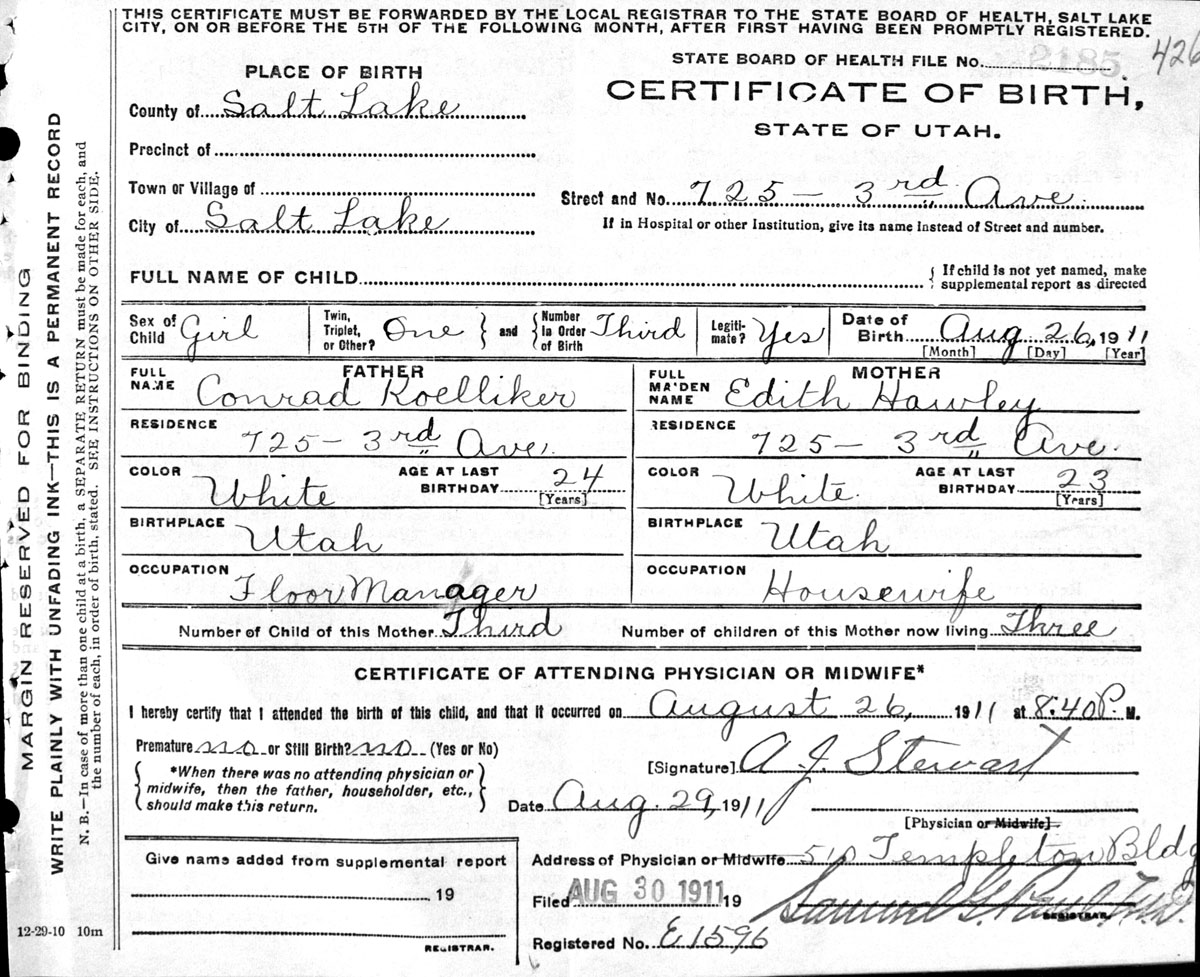 THIS CERTIFICATE MUST BE FORWARDED BY THE LOCAL REGISTRAR TO THE STATE BOARD OF HEALTH, SALT LAKE
CITY, ON OR BEFORE THE 5TH OF THE FOLLOWING MONTH, AFTER FIRST HAVING BEEN PROMPTLY REGISTERED.
426
STATE BOARD OF HEALTH FILE No.
PLACE OF BIRTH
CERTIFICATE OF BIRTH,
STATE OF UTAH.
County of Salt Lake
Precinct of
Town or Village of
City of Salt Lake
Street and No. 725 — 3rd Ave.
If in Hospital or other Institution, give its name Instead of Street and number.
FULL NAME OF CHILD
{ If child is not yet named, make
supplemental report as directed
Sex of Child Girl
Twin, Triplet, or Other? One } and { Number In Order of Birth Third
Legiti-mate? Yes
Date of Birth Aug 26, 1911
[Month] [Day] [Year]
FATHER
FULL NAME Conrad Koelliker
RESIDENCE 725 — 3rd Ave.
COLOR White AGE AT LAST BIRTHDAY 24 [Years]
BIRTHPLACE Utah
OCCUPATION Floor Manager
MOTHER
FULL MAIDEN NAME Edith Hawley
RESIDENCE 725 — 3rd Ave.
COLOR White. AGE AT LAST BIRTHDAY 23 [Years]
BIRTHPLACE Utah
OCCUPATION Housewife
Number of Child of this Mother Third Number of children of this Mother now living Three
CERTIFICATE OF ATTENDING PHYSICIAN OR MIDWIFE*
I hereby certify that I attended the birth of this child, and that it occurred on August 26, 1911 at 8:40 P. M.
Premature no or Still Birth? no (Yes or No)
{ *When there was no attending physician or
midwife, then the father, householder, etc.,
should make this return. }
[Signature] A. J. Stewart
Date Aug. 29, 1911
[Physician or Midwife]
Give name added from supplemental report
19
REGISTRAR.
Address of Physician or Midwife 510 Templeton Bldg
Filed AUG 30 1911 19
REGISTRAR.
Registered No. E1596
12-29-10 10m
MARGIN RESERVED FOR BINDING
WRITE PLAINLY WITH UNFADING INK—THIS IS A PERMANENT RECORD
N. B.—In case of more than one child at a birth, a SEPARATE RETURN must be made for each, and
the number of each, in order of birth, stated. SEE INSTRUCTIONS ON OTHER SIDE.